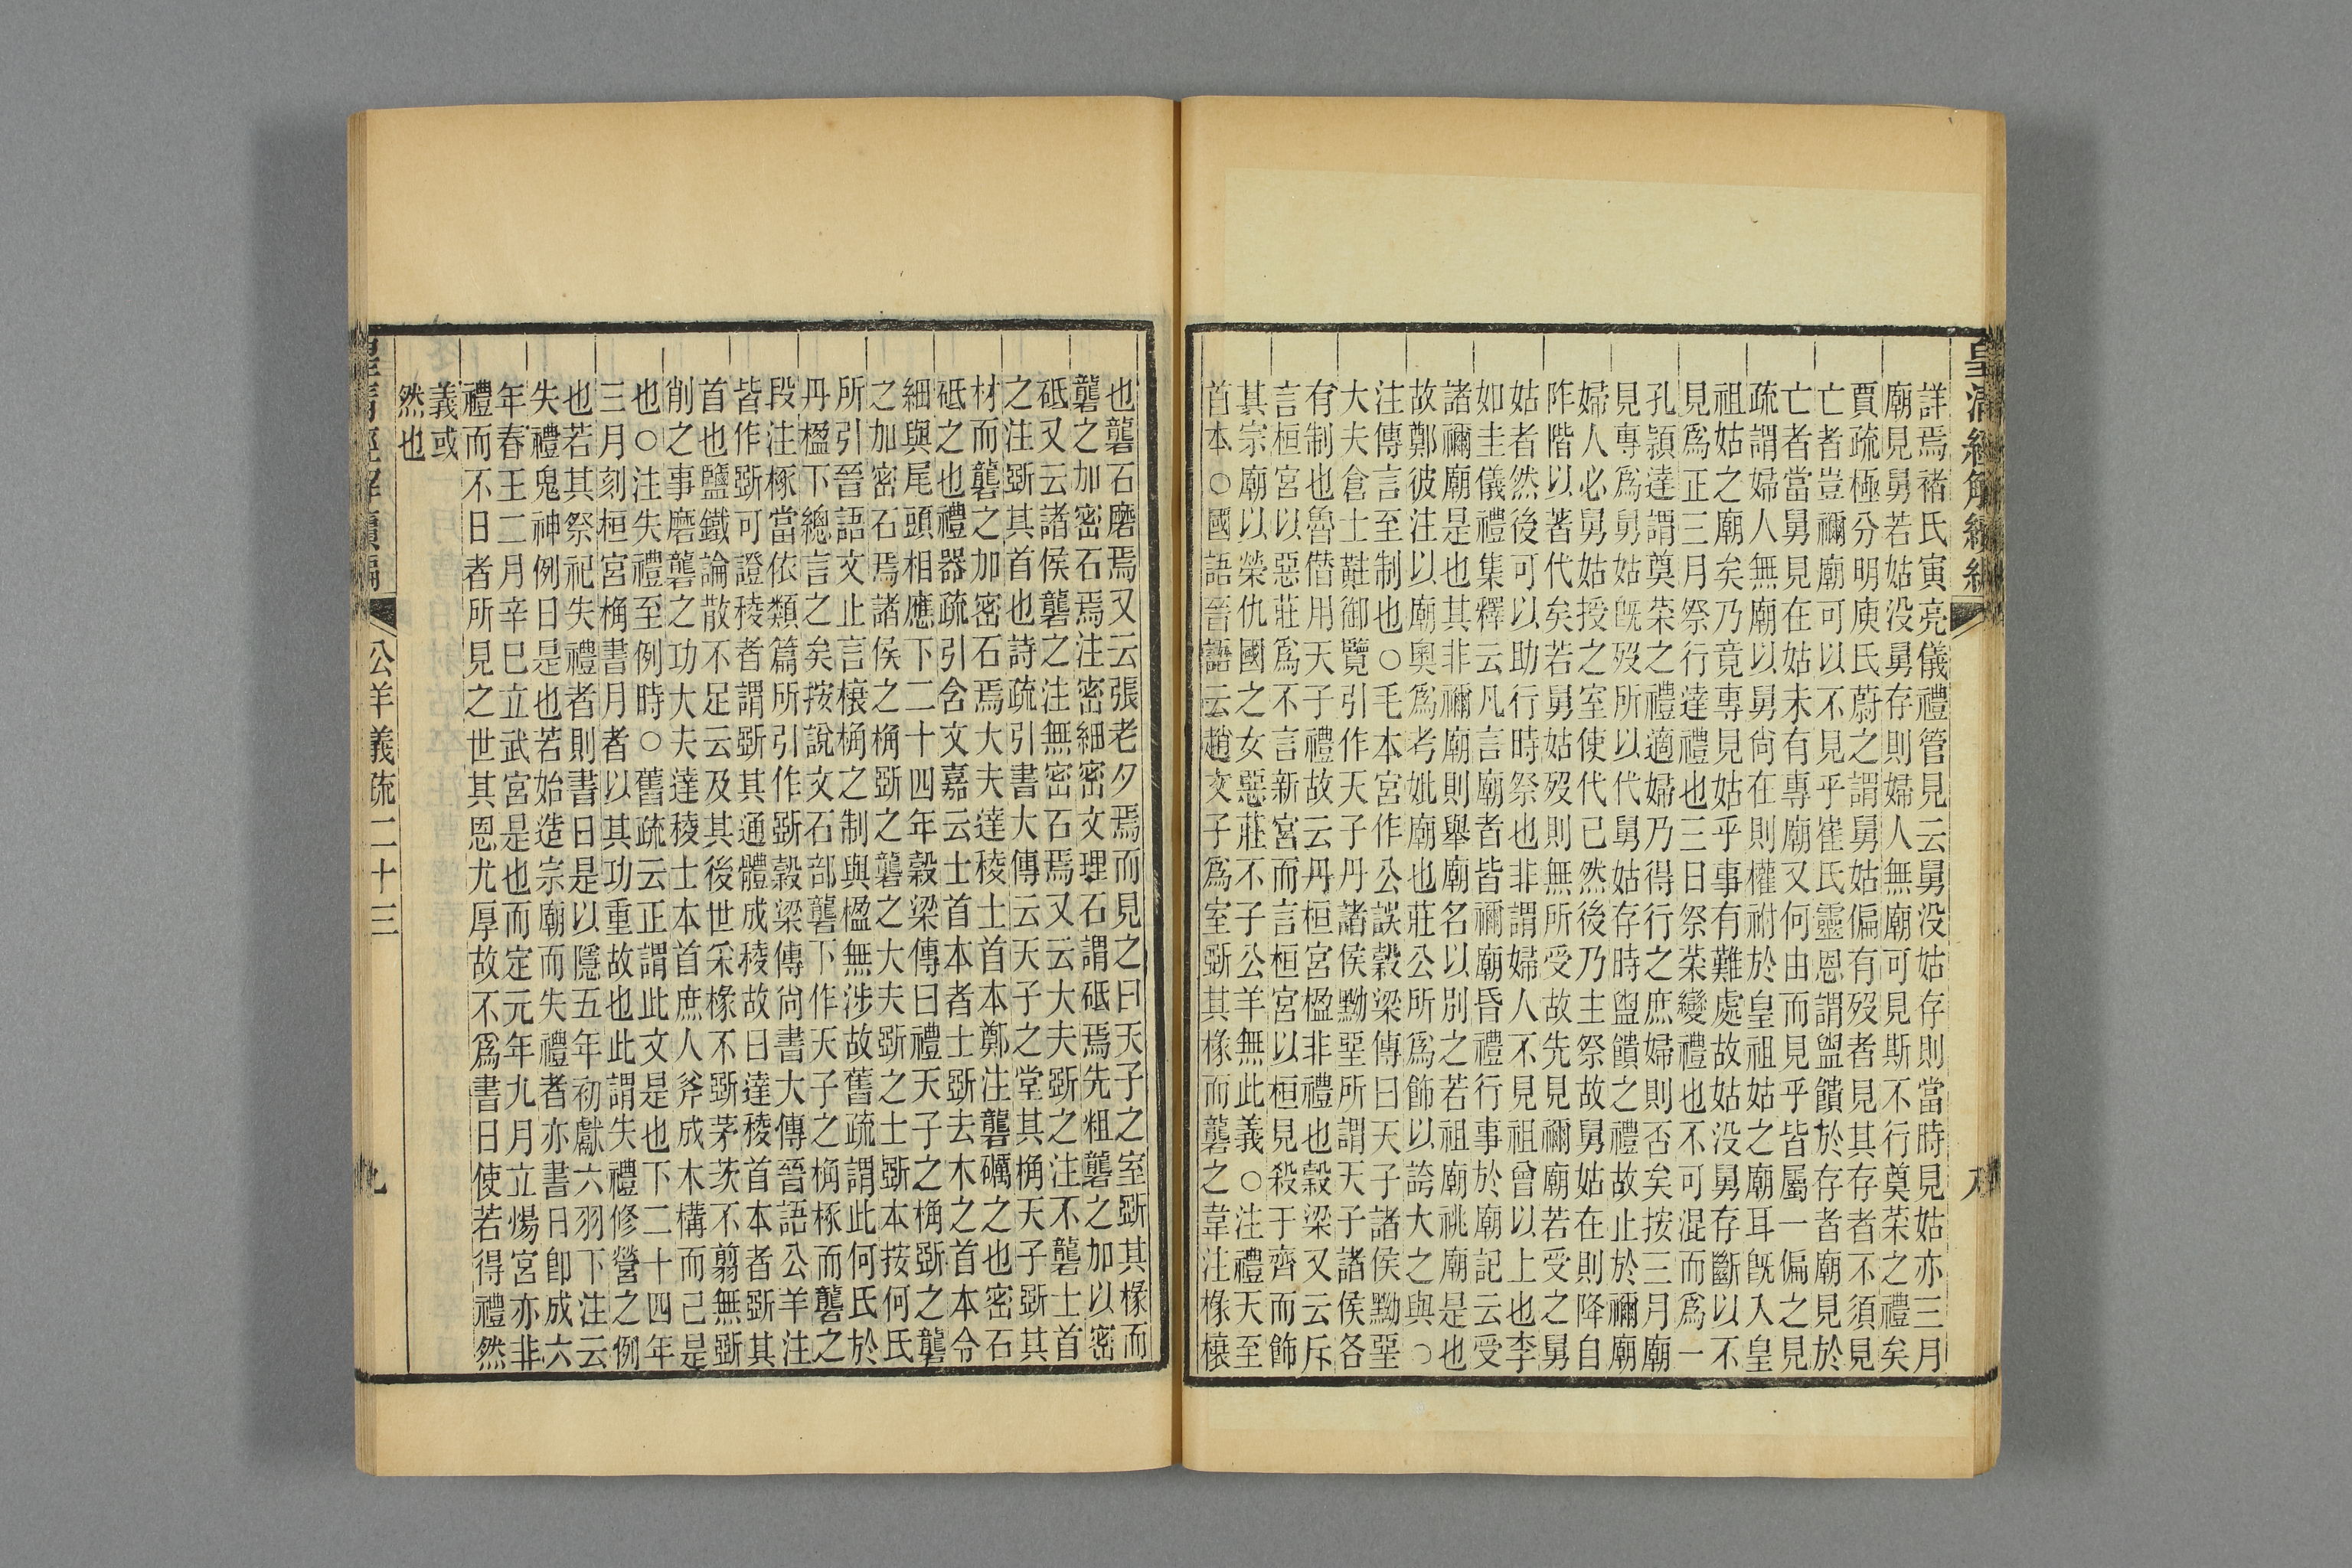 皇清經解續編
詳焉褚氏寅亮儀禮管見云舅没姑存則當時見姑亦三月
廟見舅若姑没舅存則婦人無廟可見斯不行奠菜之禮矣
賈疏極分明庾氏蔚之謂舅姑偏有歿者見其存者不須見
亡者豈禰廟可以不見乎崔氏靈恩謂盥饋於存者廟見於
亡者當舅見在姑未有專廟又何由而見乎皆屬一偏之見
疏謂婦人無廟以舅尙在則權祔於皇祖姑之廟耳旣入皇
祖姑之廟矣乃竟專見姑乎事有難處故姑没舅存斷以不
見爲正三月祭行達禮也三日祭菜變禮也不可混而爲一
孔潁達謂奠菜之禮適婦乃得行之庶婦則否矣按三月廟
見專爲舅姑旣歿所以代舅姑存時盥饋之禮故止於禰廟
婦人必舅姑授之室使代已然後乃主祭故舅姑在則降自
阼階以著代矣若舅姑歿則無所受故先見禰廟若受之舅
姑者然後可以助行時祭也非謂婦人不見祖曾以上也李
如圭儀禮集釋云凡言廟者皆禰廟昏禮行事於廟記云受
諸禰廟是也其非禰廟則舉廟名以別之若祖廟祧廟是也
故鄭彼注以廟奧爲考妣廟也莊公所爲飾以誇大之與○
注傳言至制也○毛本宮作公誤穀梁傳曰天子諸侯黝堊
大夫倉士黈御覽引作天子丹諸侯黝堊所謂天子諸侯各
有制也魯僭用天子禮故云丹桓宮楹非禮也穀梁又云斥
言桓宮以惡莊爲不言新宮而言桓宮以桓見殺于齊而飾
其宗廟以榮仇國之女惡莊不子公羊無此義○注禮天至
首本○國語晉語云趙文子爲室斲其椽而礱之韋注椽榱
也礱石磨焉又云張老夕焉而見之曰天子之室斲其椽而
礱之加密石焉注密細密文理石謂砥焉先粗礱之加以密
砥又云諸侯礱之注無密石焉又云大夫斲之注不礱士首
之注斲其首也詩疏引書大傳云天子之堂其桷天子斲其
材而礱之加密石焉大夫達稜士首本鄭注礱礪之也密石
砥之也禮器疏引含文嘉云士首本者士斲去木之首本令
細與尾頭相應下二十四年穀梁傳曰禮天子之桷斲之礱
之加密石焉諸侯之桷斲之礱之大夫斲之士斲本按何氏
所引晉語文止言榱桷之制與楹無涉故舊疏謂此何氏於
丹楹下總言之矣按說文石部礱下作天子之桷椓而礱之
段注椓當依類篇所引作斲穀梁傳尙書大傳晉語公羊注
皆作斲可證稜者謂斲其通體成稜故曰達稜首本者斲其
首也鹽鐵論散不足云及其後世采椽不斲茅茨不翦無斲
削之事磨礱之功大夫達稜士本首庶人斧成木構而已是
也○注失禮至例時○舊疏云正謂此文是也下二十四年
三月刻桓宮桷書月者以其功重故也此謂失禮修營之例
也若其祭祀失禮者則書日是以隱五年初獻六羽下注云
失禮鬼神例日是也若始造宗廟而失禮者亦書日卽成六
年春王二月辛巳立武宮是也而定元年九月立煬宮亦非
禮而不日者所見之世其恩尤厚故不爲書日使若得禮然
義或
然也
皇清經解續編
公羊義疏二十三
九